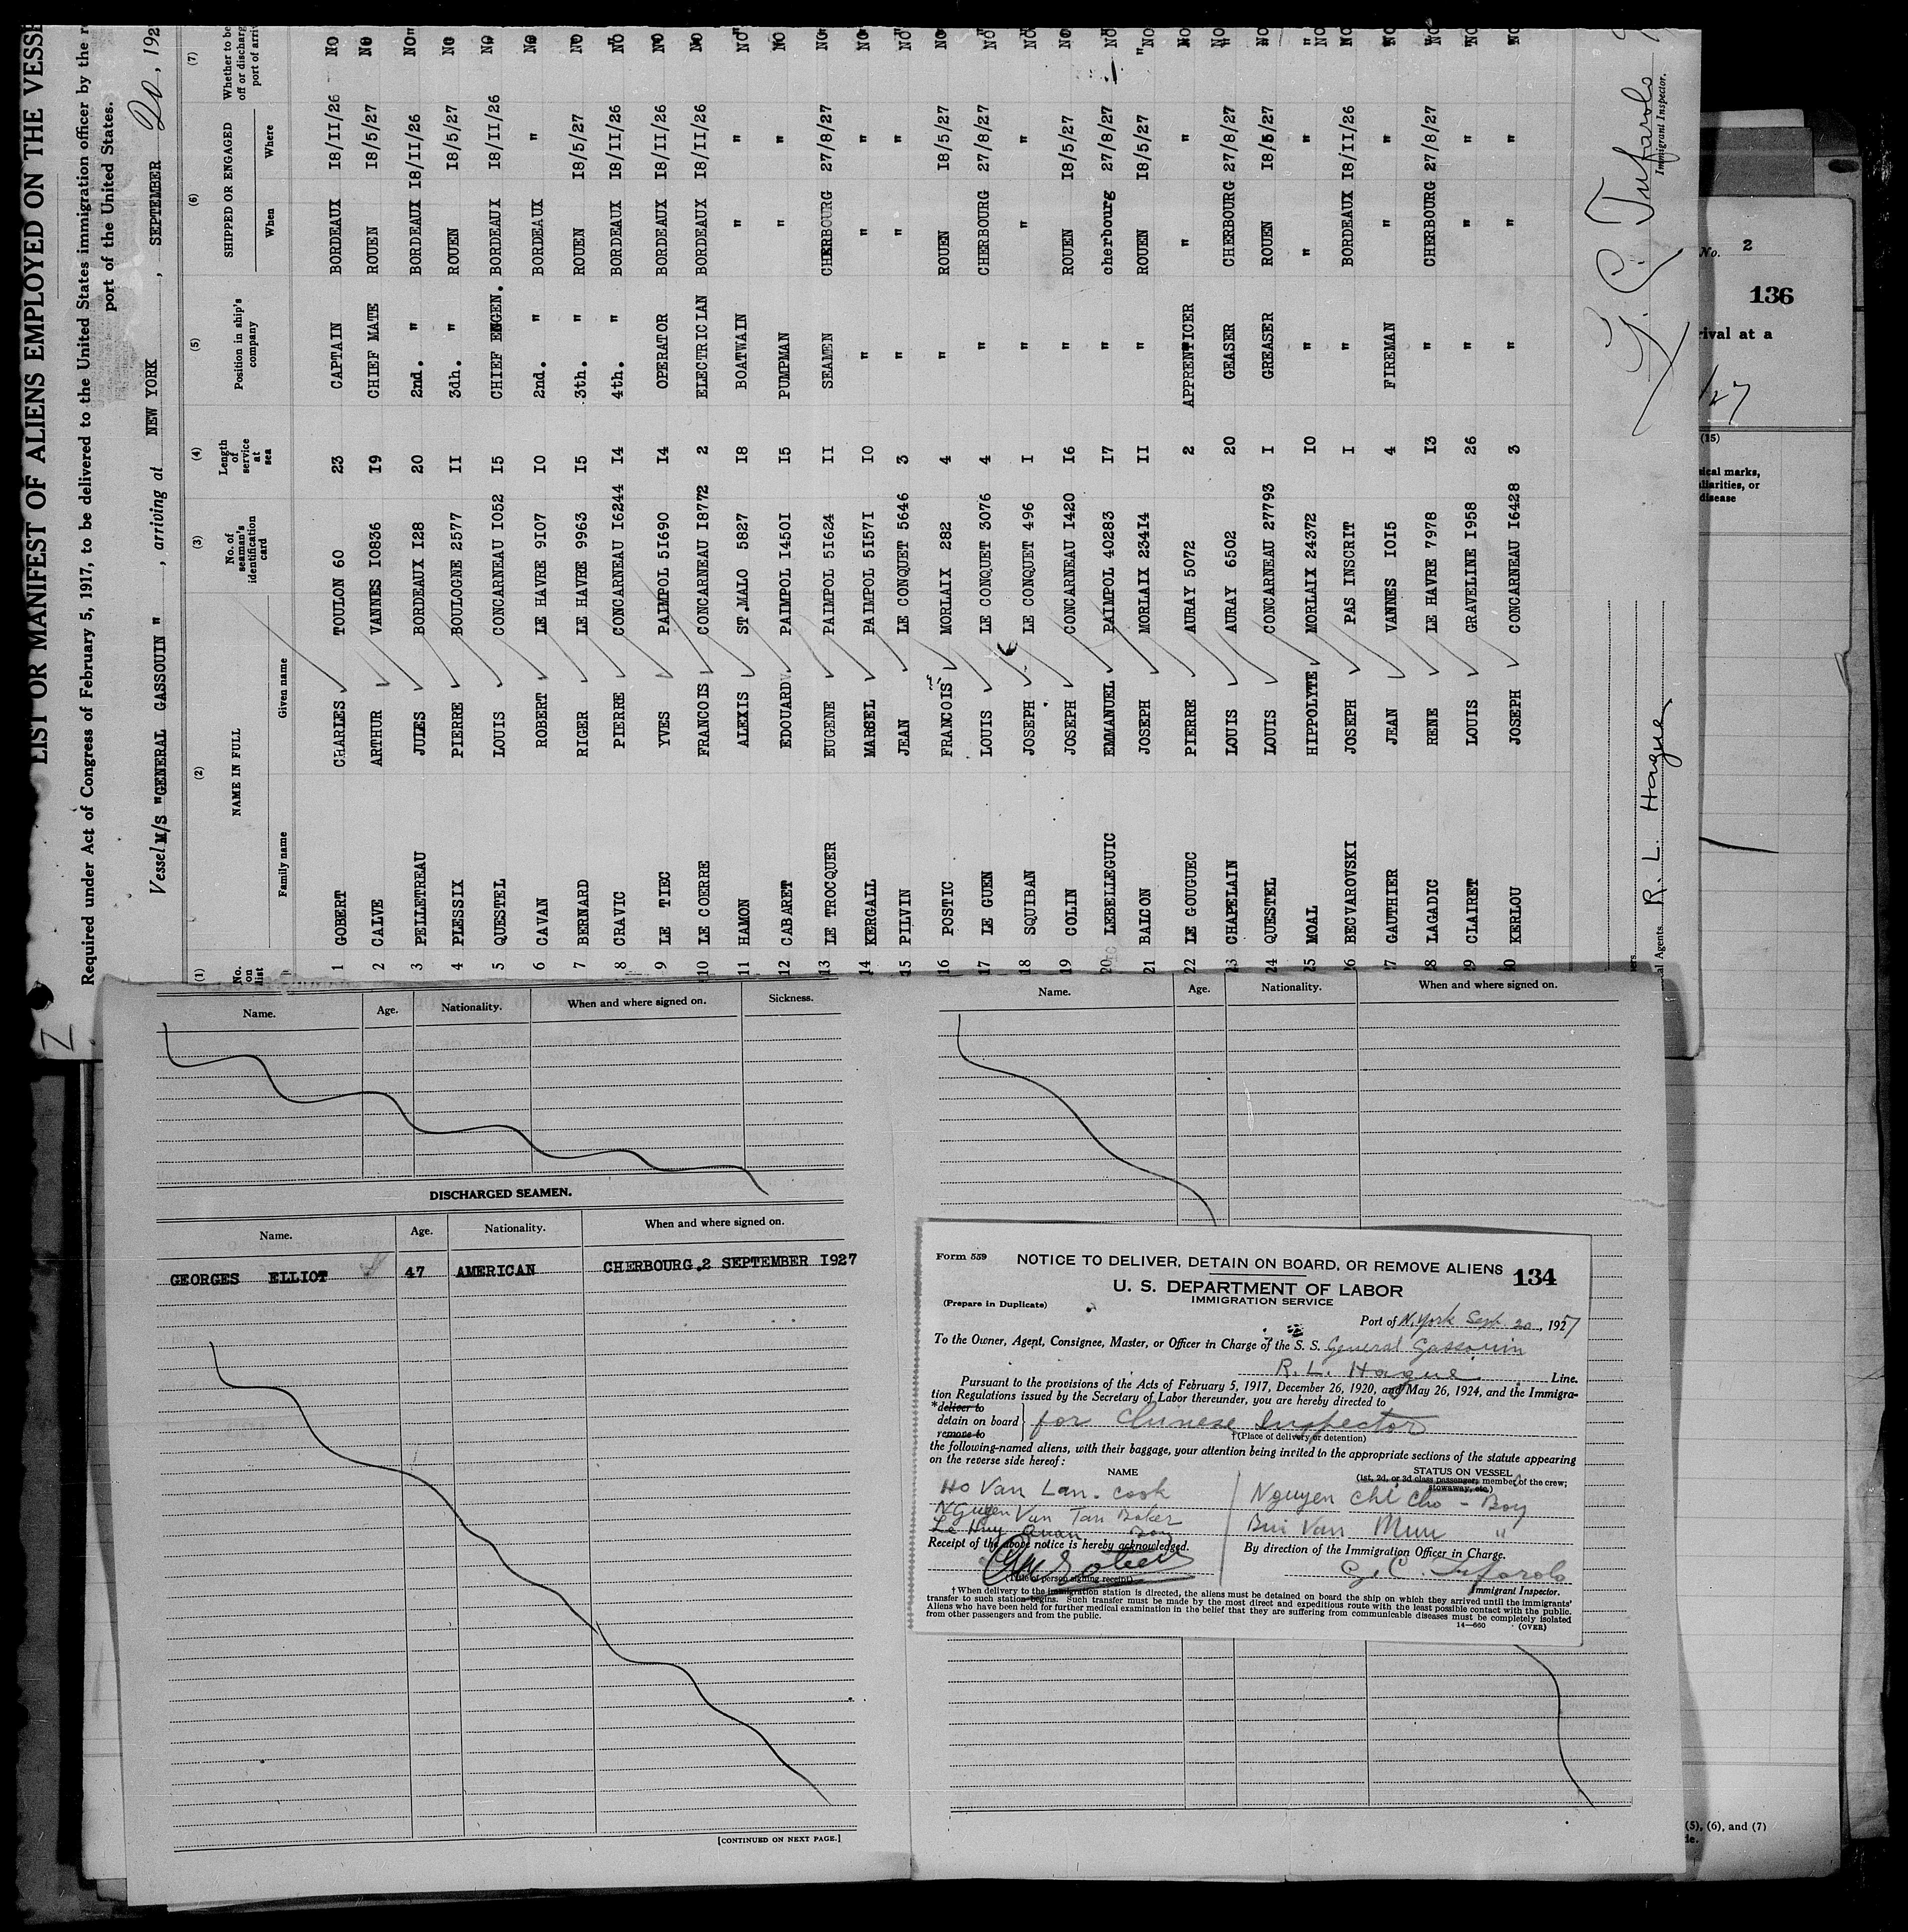 LIST OR MANIFEST OF ALIENS EMPLOYED ON THE VESSE
Required under Act of Congress of February 5, 1917, to be delivered to the United States immigration officer by the r
port of the United States.
Vessel M/S "GENERAL GASSOUIN " , arriving at NEW YORK , SEPTEMBER 20, 192
(1) (2) (3) (4) (5) (6) (7)
No. on list NAME IN FULL Family name Given name No. of seaman's identification card Length of service at sea Position in ship's company SHIPPED OR ENGAGED When Where Whether to be off or discharg port of arriv
1 GOBERT CHARLES TOULON 60 23 CAPTAIN BORDEAUX I8/II/26 NO
2 CALVE ARTHUR VANNES I0836 I9 CHIEF MATE ROUEN I8/5/27 NO
3 PELLETREAU JULES BORDEAUX I28 20 2nd. " BORDEAUX I8/II/26 NO"
4 PLESSIX PIERRE BOULOGNE 2577 II 3dh. " ROUEN I8/5/27 NO
5 QUESTEL LOUIS CONCARNEAU I052 I5 CHIEF ENGEN. BORDEAUX I8/II/26 NO
6 CAVAN ROBERT LE HAVRE 9I07 I0 2nd. " BORDEAUX " NO
7 BERNARD RIGER LE HAVRE 9963 I5 3th. " ROUEN I8/5/27 NO
8 CRAVIC PIERRE CONCARNEAU I6244 I4 4th. " BORDEAUX I8/II/26 NO
9 LE TIEC YVES PAIMPOL 5I690 I4 OPERATOR BORDEAUX I8/II/26 NO
10 LE COERRE FRANCOIS CONCARNEAU I8772 2 ELECTRICIAN BORDEAUX I8/II/26 NO
11 HAMON ALEXIS ST.MALO 5827 I8 BOATWAIN " " NO"
12 CABARET EDOUARD PAIMPOL I450I I5 PUMPMAN " " NO
13 LE TROCQUER EUGENE PAIMPOL 5I624 II SEAMEN CHERBOURG 27/8/27 NO"
14 KERGALL MARSEL PAIMPOL 5I57I I0 " " " NO
15 PILVIN JEAN LE CONQUET 5646 3 " " " NO"
16 POSTIC FRANCOIS MORLAIX 282 4 " ROUEN I8/5/27 NO"
17 LE GUEN LOUIS LE CONQUET 3076 4 " CHERBOURG 27/8/27 NO"
18 SQUIBAN JOSEPH LE CONQUET 496 I " " " NO"
19 COLIN JOSEPH CONCARNEAU I420 I6 " ROUEN I8/5/27 NO
20 LEBELLEGUIC EMMANUEL PAIMPOL 40283 I7 " cherbourg 27/8/27 NO"
21 BALCON JOSEPH MORLAIX 234I4 II " ROUEN I8/5/27 "NO
22 LE GOUGUEC PIERRE AURAY 5072 2 APPRENTICER " " NO
23 CHAPELAIN LOUIS AURAY 6502 20 GEASER CHERBOURG 27/8/27 NO
24 QUESTEL LOUIS CONCARNEAU 27793 I GREASER ROUEN I8/5/27 NO
25 MOAL HIPPOLYTE MORLAIX 24372 I0 " " " "NO
26 BECVAROVSKI JOSEPH PAS INSCRIT I " BORDEAUX I8/II/26 NO
27 GAUTHIER JEAN VANNES I0I5 4 FIREMAN " " NO
28 LAGADIC RENE LE HAVRE 7978 I3 " CHERBOURG 27/8/27 NO
29 CLAIRET LOUIS GRAVELINE I958 26 " " " NO
30 KERLOU JOSEPH CONCARNEAU I6428 3 " " " NO
al Agents. R. L. Hague
G. C. Tufarolo
Immigrant Inspector.
No. 2
136
rival at a
/27
(15)
sical marks,
uliarities, or
disease
(5), (6), and (7)
de.
Name. Age. Nationality. When and where signed on. Sickness.
DISCHARGED SEAMEN.
Name. Age. Nationality. When and where signed on.
GEORGES ELLIOT 47 AMERICAN CHERBOURG.2 SEPTEMBER I927
[CONTINUED ON NEXT PAGE.]
Name. Age. Nationality. When and where signed on.
Form 559 NOTICE TO DELIVER, DETAIN ON BOARD, OR REMOVE ALIENS 134
U. S. DEPARTMENT OF LABOR
IMMIGRATION SERVICE
(Prepare in Duplicate)
Port of N. York Sept. 20, 1927
To the Owner, Agent, Consignee, Master, or Officer in Charge of the S. S. General Gassouin
R. L. Hague Line.
Pursuant to the provisions of the Acts of February 5, 1917, December 26, 1920, and May 26, 1924, and the Immigra-
tion Regulations issued by the Secretary of Labor thereunder, you are hereby directed to
*deliver to
detain on board for Chinese Inspector
remove to
†(Place of delivery or detention)
the following-named aliens, with their baggage, your attention being invited to the appropriate sections of the statute appearing
on the reverse side hereof:
NAME STATUS ON VESSEL
(1st, 2d, or 3d class passenger, member of the crew;
stowaway, etc.)
Ho Van Lan - Cook Nguyen Chi Cho - Boy
Nguyen Van Tan Baker Bui Van Muu "
Le Huy Quan Boy
Receipt of the above notice is hereby acknowledged. By direction of the Immigration Officer in Charge.
G. C. Tufarolo
(Title of person signing receipt) Immigrant Inspector.
† When delivery to the immigration station is directed, the aliens must be detained on board the ship on which they arrived until the immigrants'
transfer to such station begins. Such transfer must be made by the most direct and expeditious route with the least possible contact with the public.
Aliens who have been held for further medical examination in the belief that they are suffering from communicable diseases must be completely isolated
from other passengers and from the public.
14—660 (OVER)